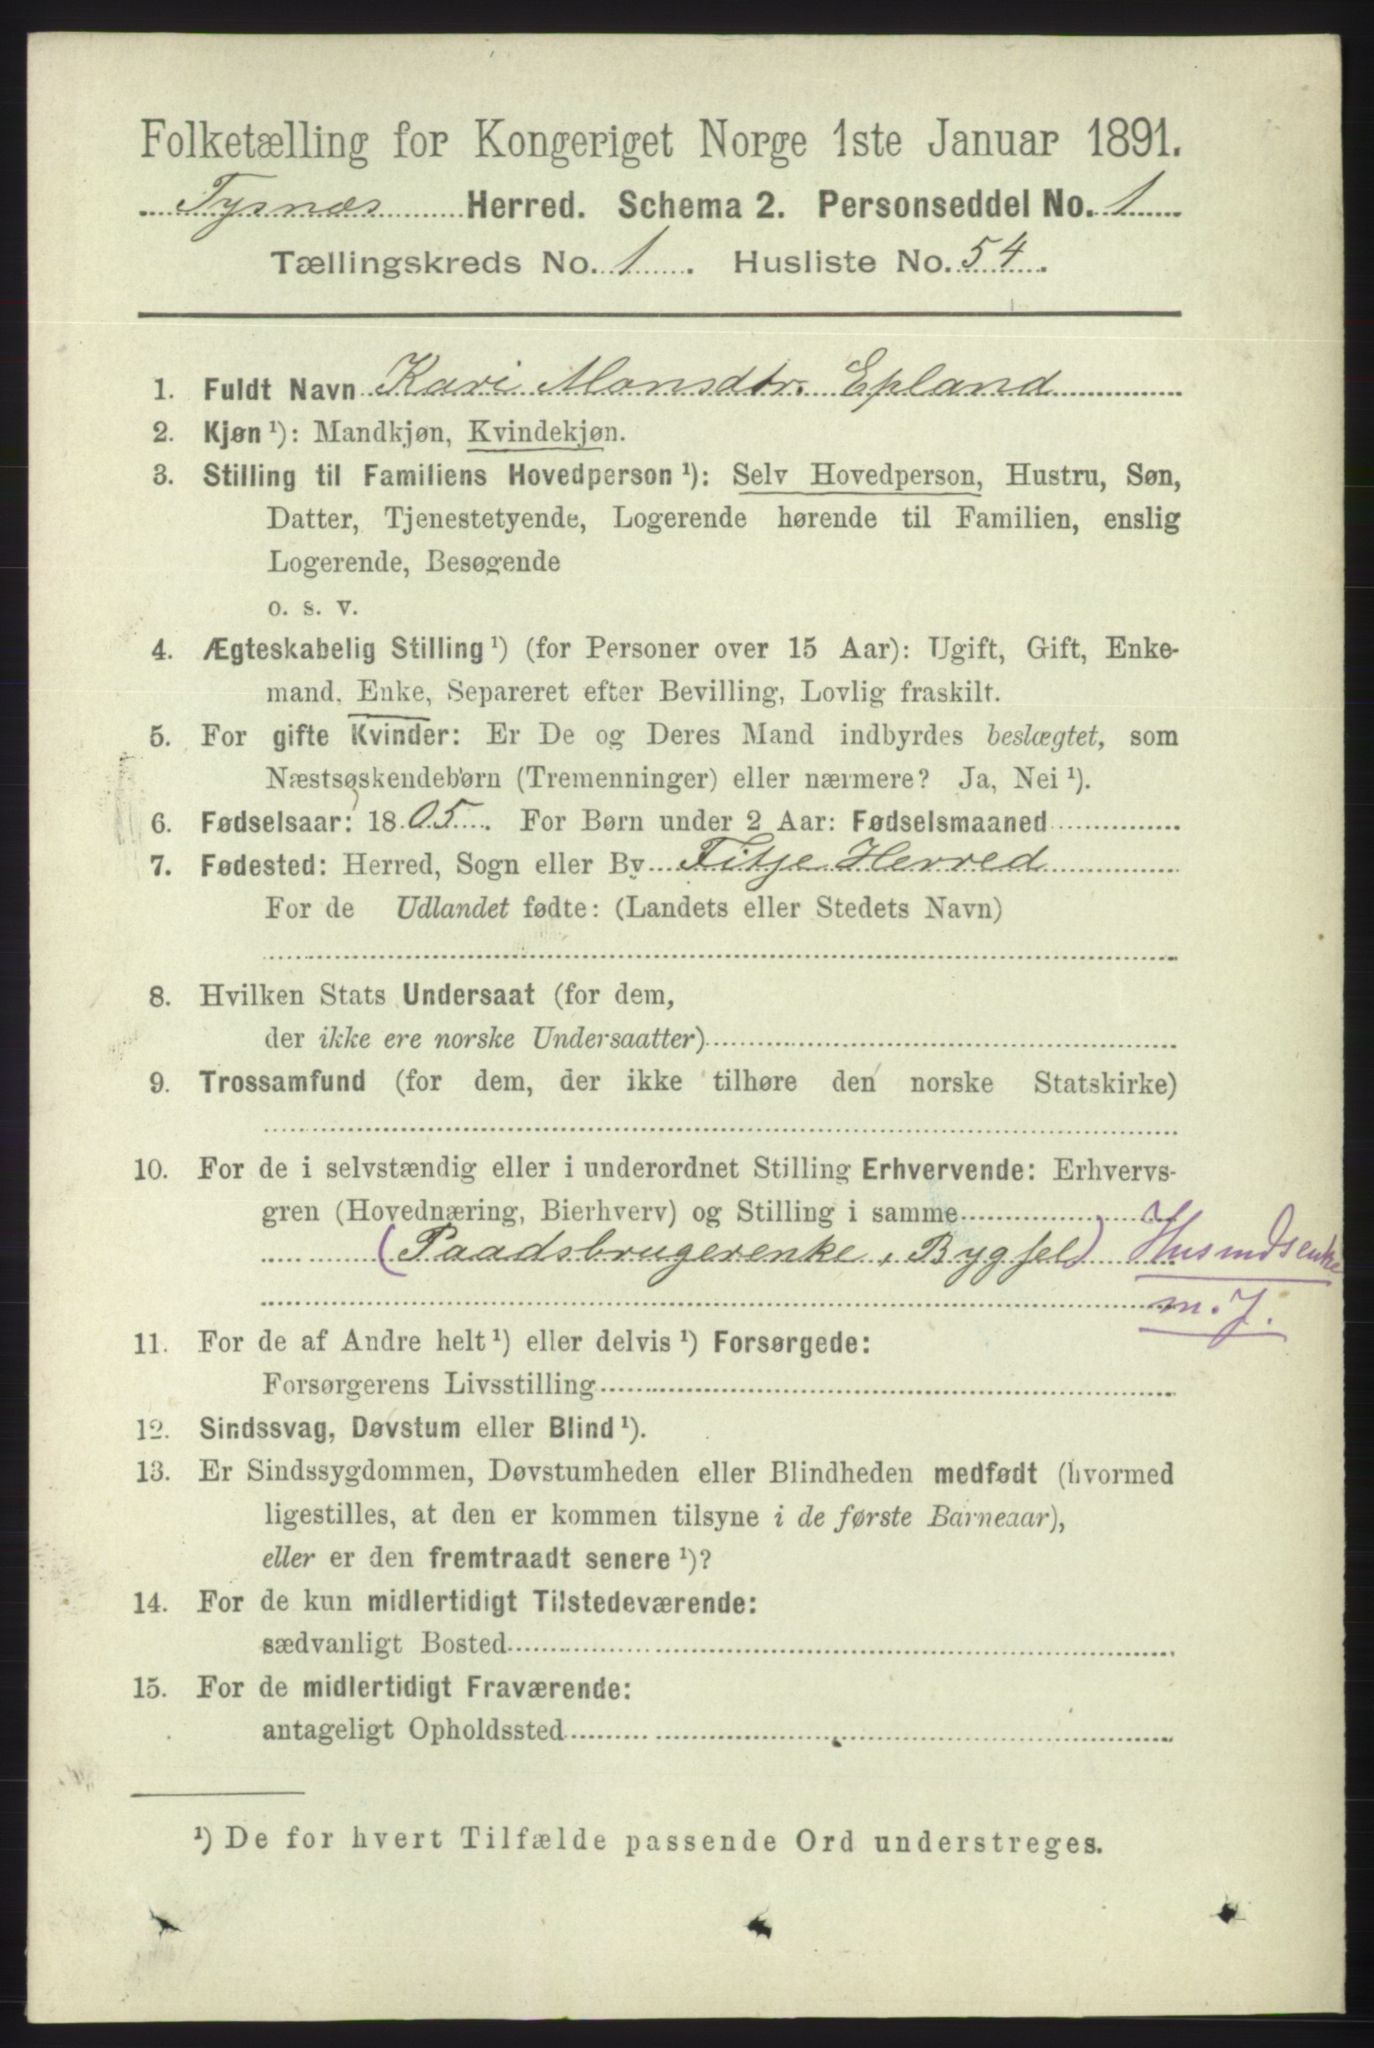 Folketælling for Kongeriget Norge 1ste Januar 1891.
Tysnæs Herred. Schema 2. Personseddel No. 1
Tællingskreds No. 1. Husliste No. 54.
1. Fuldt Navn Kari Monsdtr. Epland
2. Kjøn ¹): Mandkjøn, Kvindekjøn.
3. Stilling til Familiens Hovedperson ¹): Selv Hovedperson, Hustru, Søn,
Datter, Tjenestetyende, Logerende hørende til Familien, enslig
Logerende, Besøgende
o. s. v.
4. Ægteskabelig Stilling ¹) (for Personer over 15 Aar): Ugift, Gift, Enke-
mand, Enke, Separeret efter Bevilling, Lovlig fraskilt.
5. For gifte Kvinder: Er De og Deres Mand indbyrdes beslægtet, som
Næstsøskendebørn (Tremenninger) eller nærmere? Ja, Nei ¹).
6. Fødselsaar: 1805. For Børn under 2 Aar: Fødselsmaaned
7. Fødested: Herred, Sogn eller By Fitje Herred
For de Udlandet fødte: (Landets eller Stedets Navn)
8. Hvilken Stats Undersaat (for dem,
der ikke ere norske Undersaatter)
9. Trossamfund (for dem, der ikke tilhøre den norske Statskirke)
10. For de i selvstændig eller i underordnet Stilling Erhvervende: Erhvervs-
gren (Hovednæring, Bierhverv) og Stilling i samme
(Paadsbrugerenke, Bygsel) Husmdsenke
m. J.
11. For de af Andre helt ¹) eller delvis ¹) Forsørgede:
Forsørgerens Livsstilling
12. Sindssvag, Døvstum eller Blind ¹).
13. Er Sindssygdommen, Døvstumheden eller Blindheden medfødt (hvormed
ligestilles, at den er kommen tilsyne i de første Barneaar),
eller er den fremtraadt senere ¹)?
14. For de kun midlertidigt Tilstedeværende:
sædvanligt Bosted
15. For de midlertidigt Fraværende:
antageligt Opholdssted
¹) De for hvert Tilfælde passende Ord understreges.